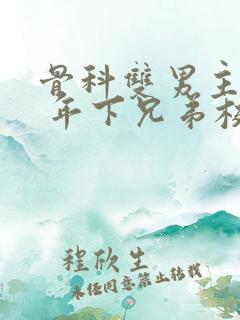 骨科雙男主
年下兄弟校
程欣生
未經同意禁止轉載